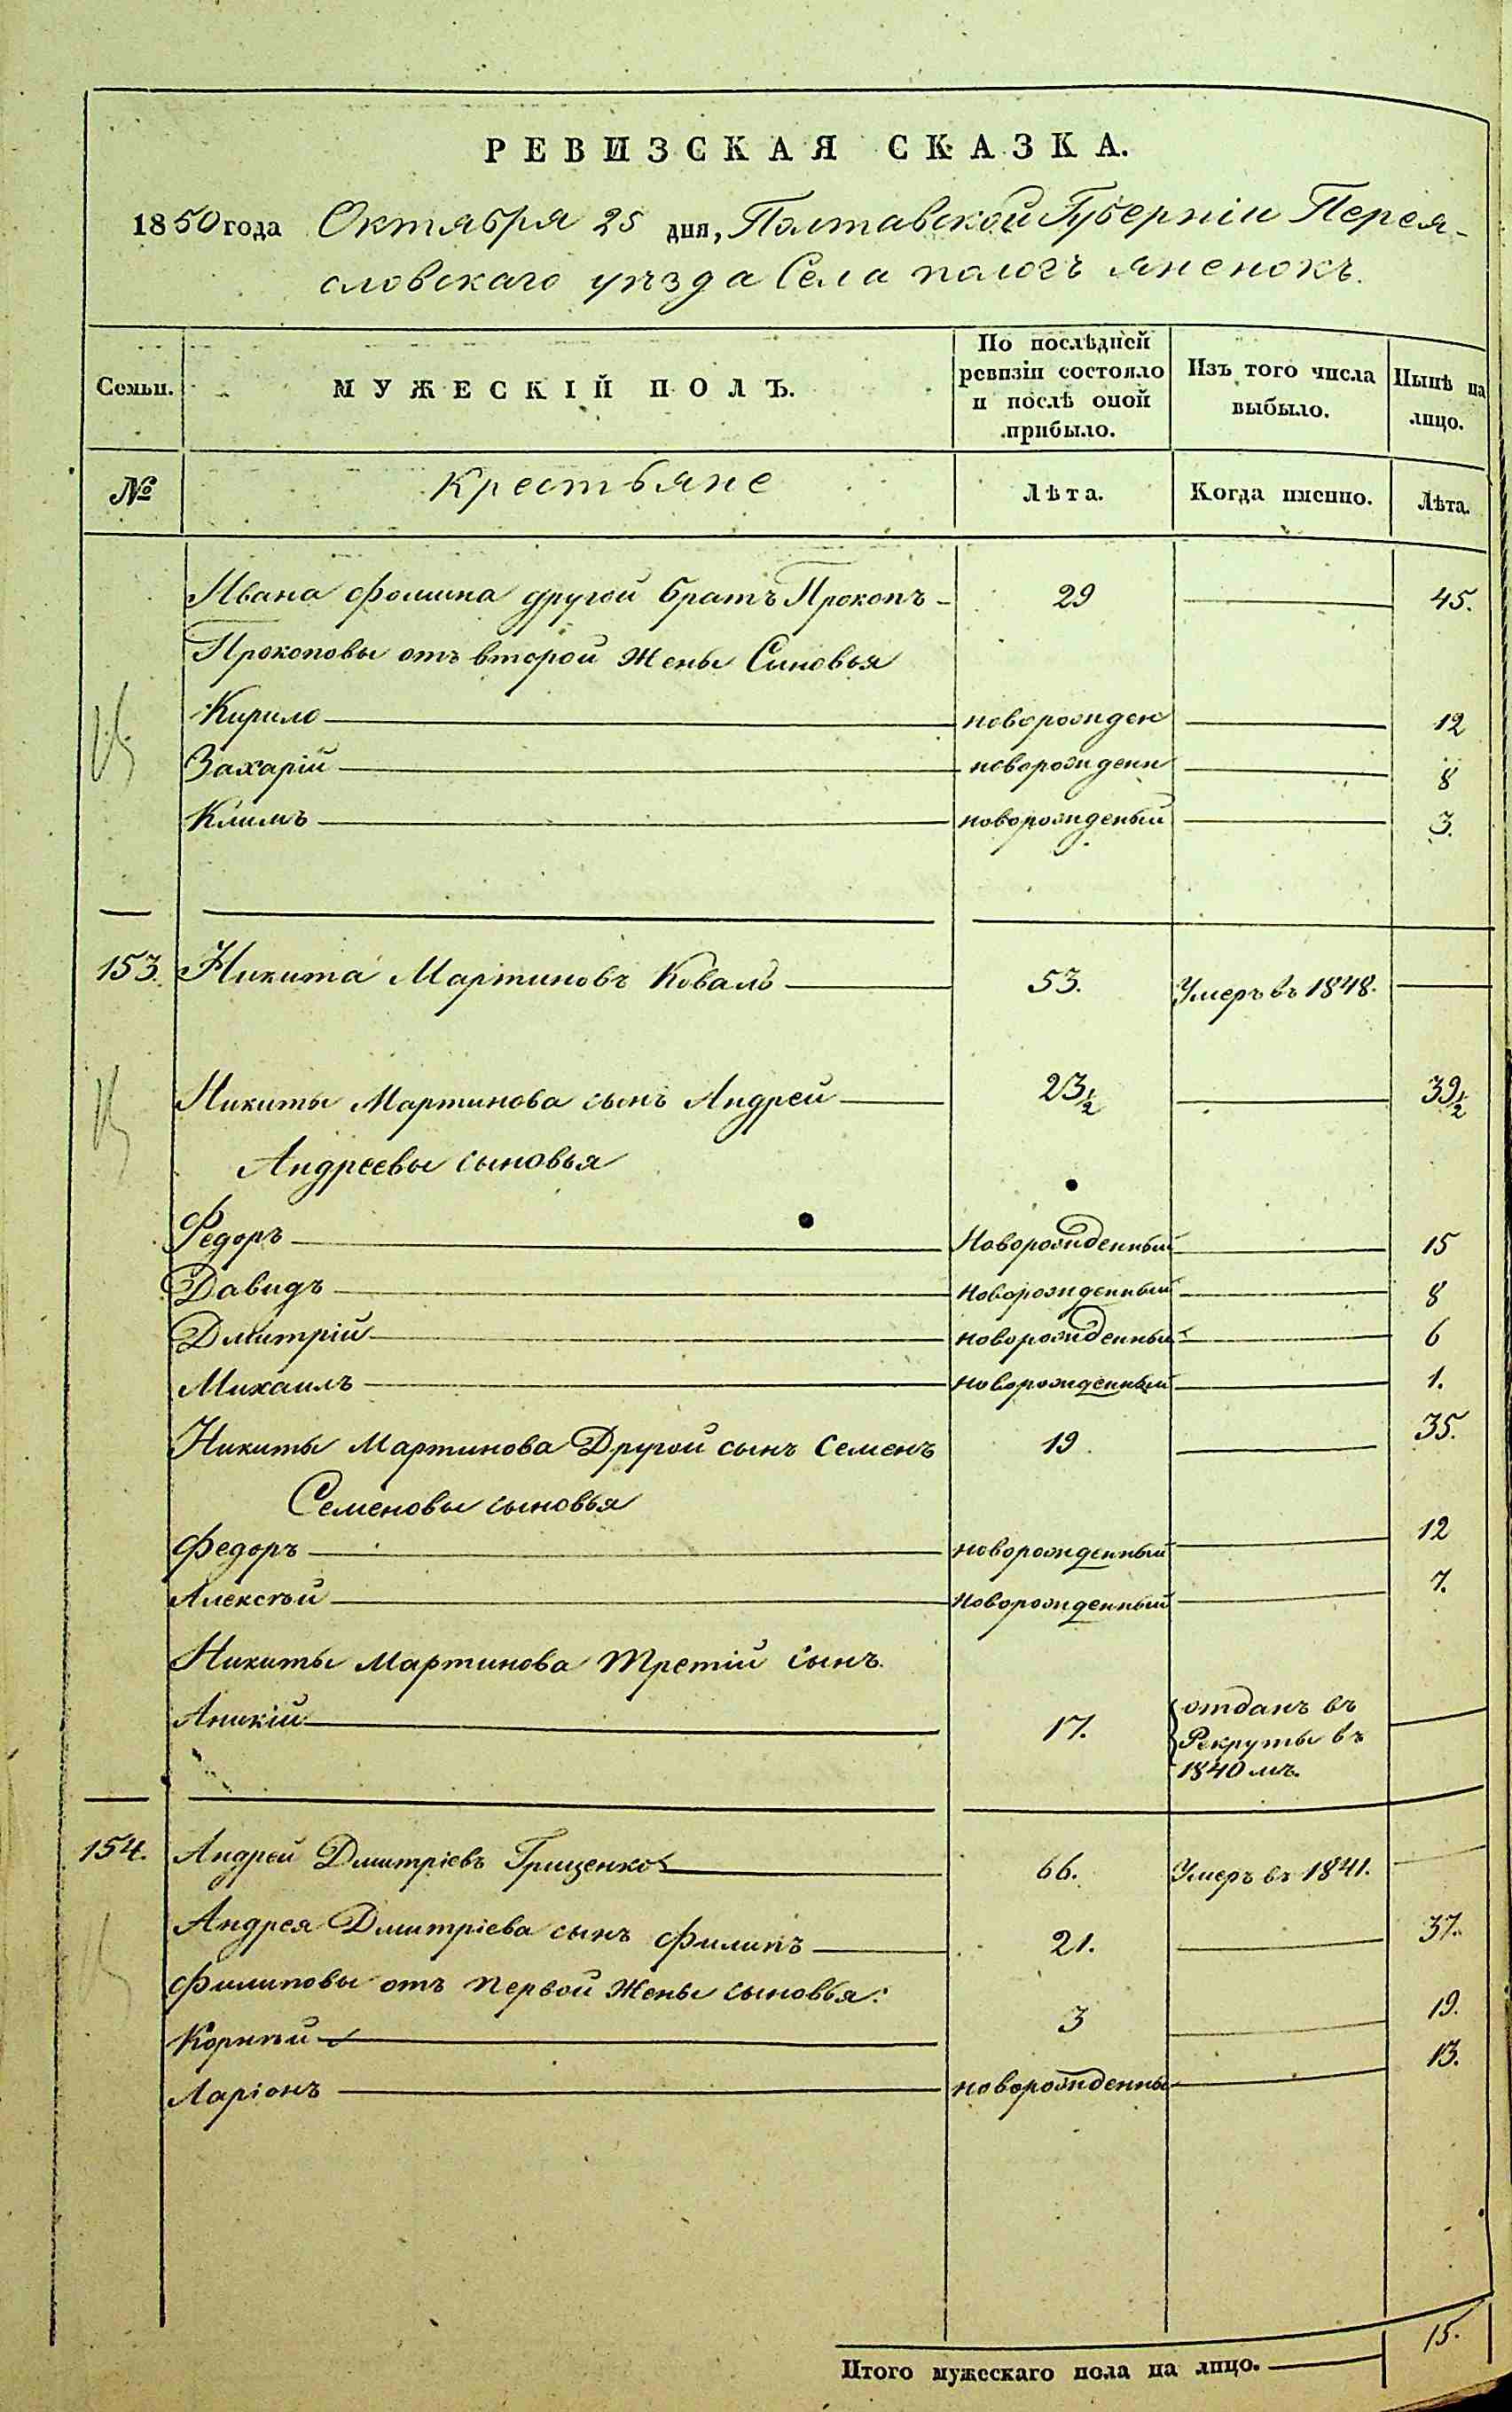 РЕВИЗСКАЯ СКАЗКА.
1850 года Октября 25 дня, Полтавской Губерніи Перея-
словскаго уѣзда Села пологъ яненокъ.
Семьи.
МУЖЕСКІЙ ПОЛЪ.
По послѣдней ревизіи состояло и послѣ оной прибыло.
Изъ того числа выбыло.
Нынѣ на лицо.
№ Крестьяне Лѣта. Когда именно. Лѣта.
Ивана Фомина другой братъ Прокопъ 29 45.
Прокоповы отъ второй жены Сыновья
Кирило новорожден 12
Захарій новорожденн 8
Климъ новорожденый 3.
153. Никита Мартиновъ Коваль 53. Умеръ въ 1848.
Никиты Мартинова сынъ Андрей 23½ 39½
Андреевы сыновья
Федоръ Новорожденный 15
Давидъ новорожденный 8
Дмитрій новорожденный 6
Михаилъ новорожденный 1.
Никиты Мартинова Другой сынъ Семенъ 19. 35.
Семеновы сыновья
Федоръ новорожденный 12
Алексѣй Новорожденный 7.
Никиты Мартинова третій сынъ
Аникій 17. отданъ въ
Рекруты въ
1840 мъ.
154. Андрей Дмитріевъ Грищенко 66. Умеръ въ 1841.
Андрея Дмитріева сынъ Филипъ 21. 37.
Филиповы отъ первой жены сыновья:
Корнѣй 3 19.
Ларіонъ новорожденны 13.
Итого мужескаго пола на лицо. 15.